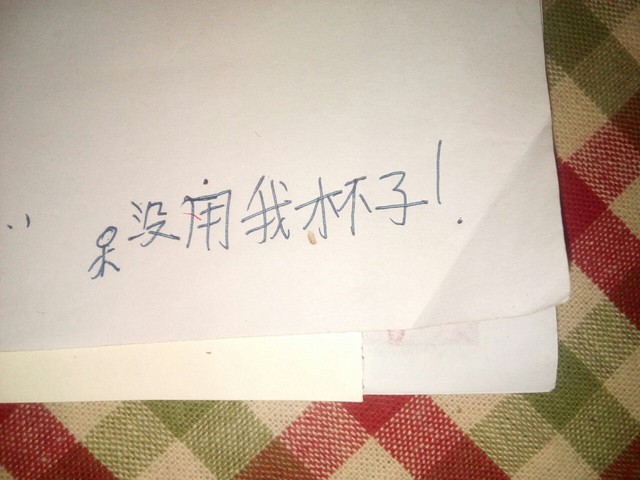 没用我杯子!